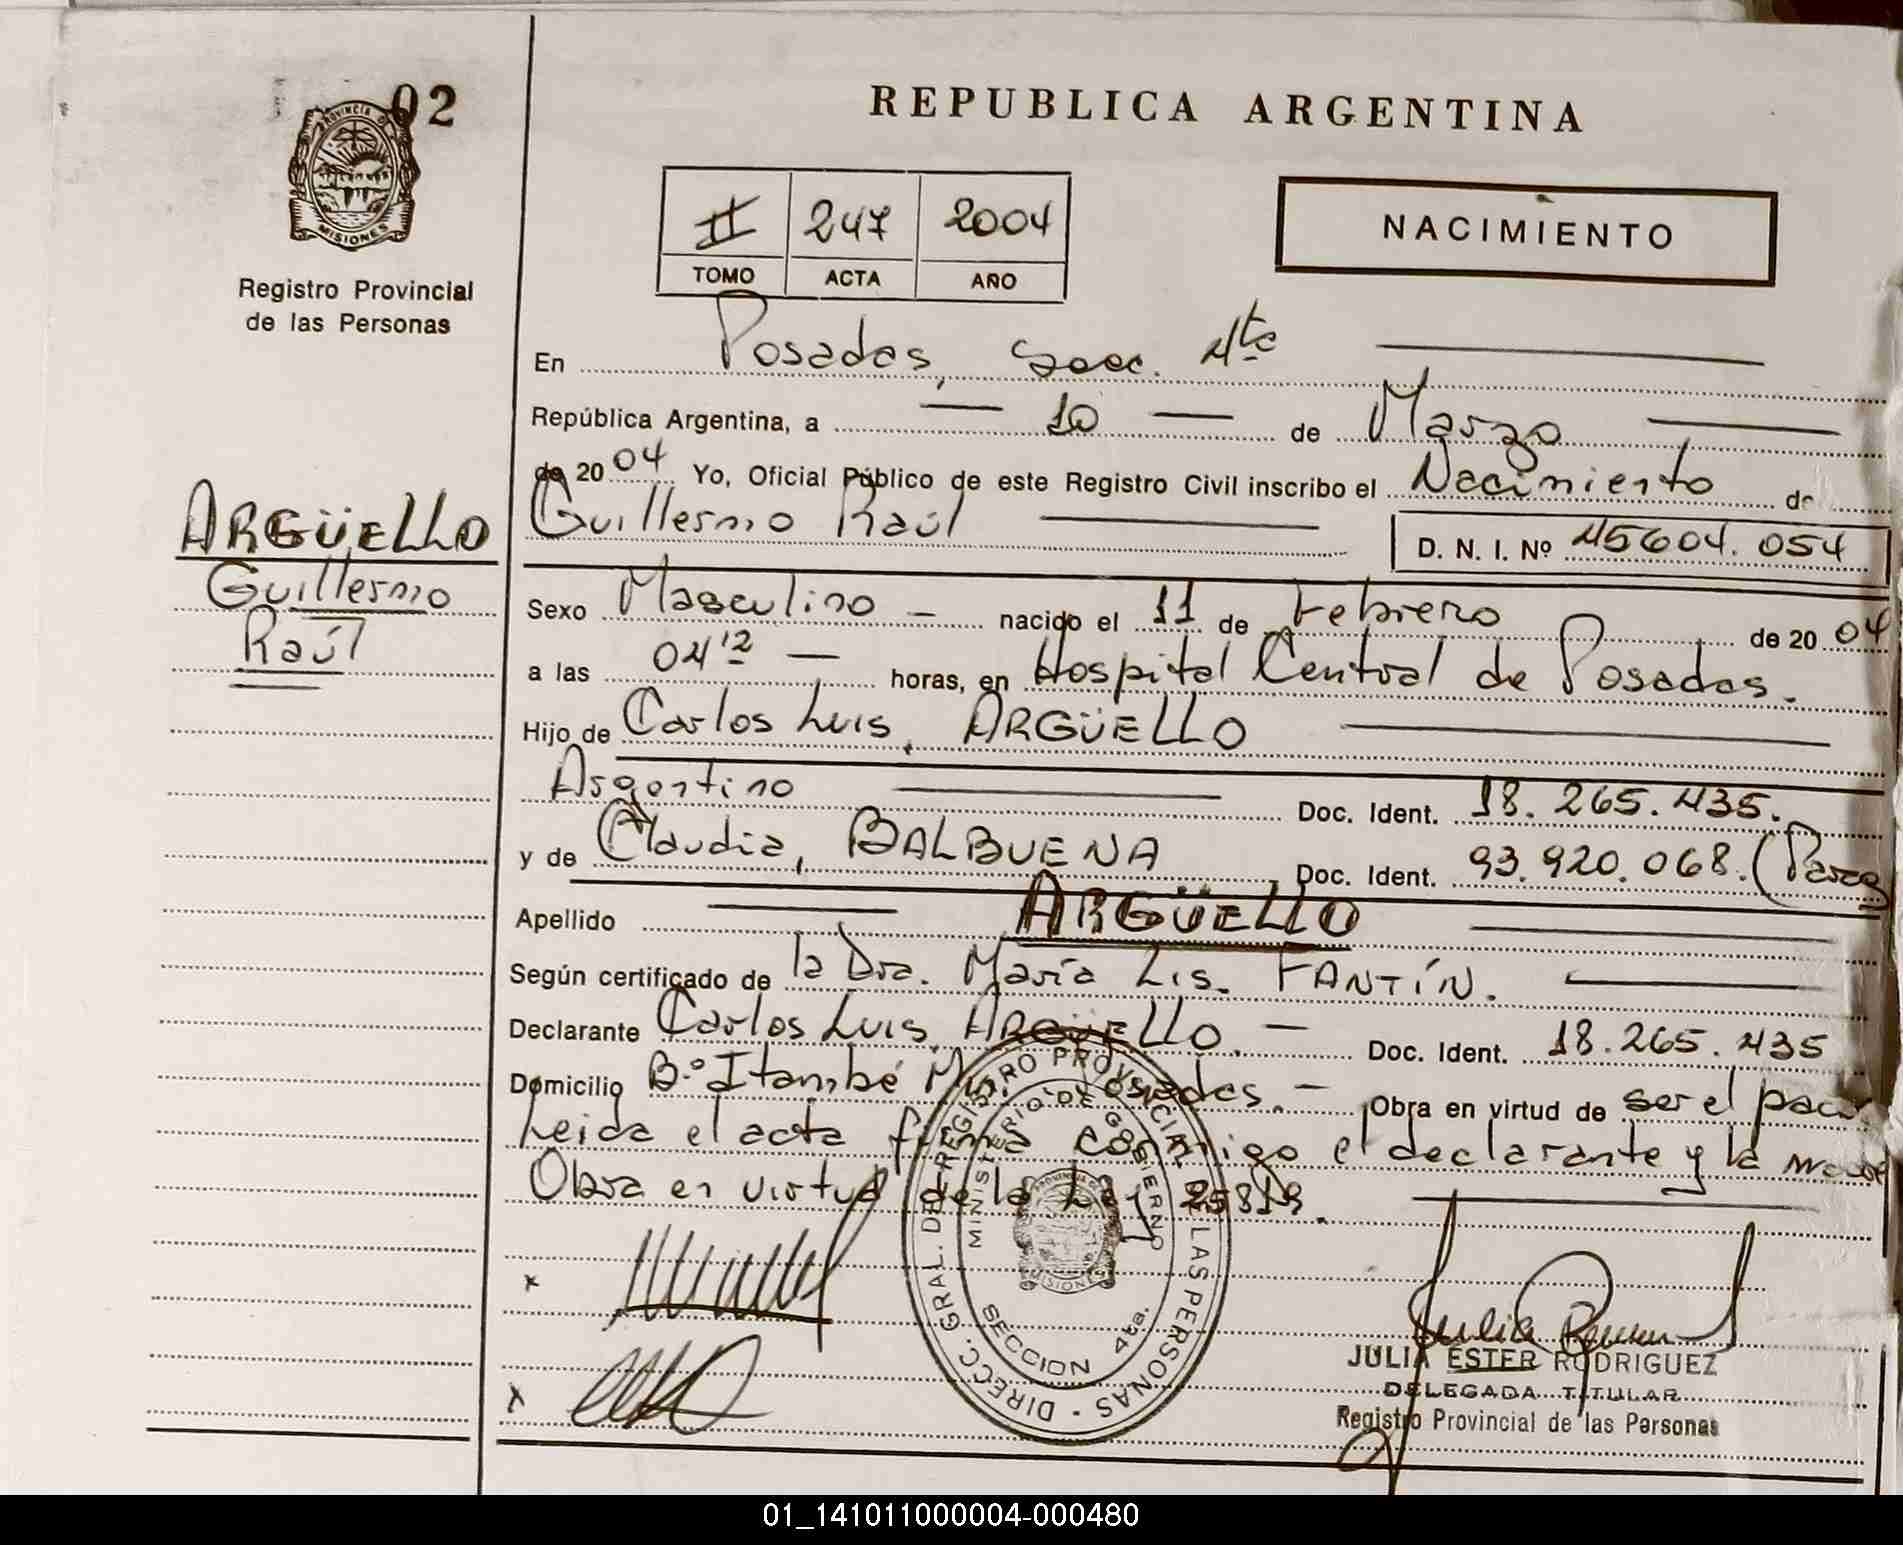 02
PROVINCIA DE
MISIONES
Registro Provincial
de las Personas
REPUBLICA ARGENTINA
II 247 2004
TOMO ACTA AÑO
NACIMIENTO
En Posadas, Secc. 4ta
República Argentina, a 10 de Marzo
de 2004 Yo, Oficial Público de este Registro Civil inscribo el Nacimiento de
Guillermo Raúl D. N. I. Nº 45604.054
ARGÜELLO
Guillermo
Raúl
Sexo Masculino nacido el 11 de Febrero de 2004
a las 04 12 horas, en Hospital Central de Posadas.
Hijo de Carlos Luis, ARGÜELLO
Argentino Doc. Ident. 18.265.435.
y de Claudia, BALBUENA Doc. Ident. 93.920.068.
Apellido ARGÜELLO
Según certificado de la Dra. María Lis. FANTÍN.
Declarante Carlos Luis, ARGÜELLO. Doc. Ident. 18.265.435
Domicilio B.º Itambé Posadas. Obra en virtud de ser el
Leida el acta firma conmigo el declarante y la madre
Obra en virtud de la Ley 25819.
DIRECC. GRAL. DEL REGISTRO PROVINCIAL DE LAS PERSONAS
MINISTERIO DE GOBIERNO
MISIONES
SECCION 4ta.
JULIA ESTER RODRIGUEZ
DELEGADA TITULAR
Registro Provincial de las Personas
01_141011000004-000480